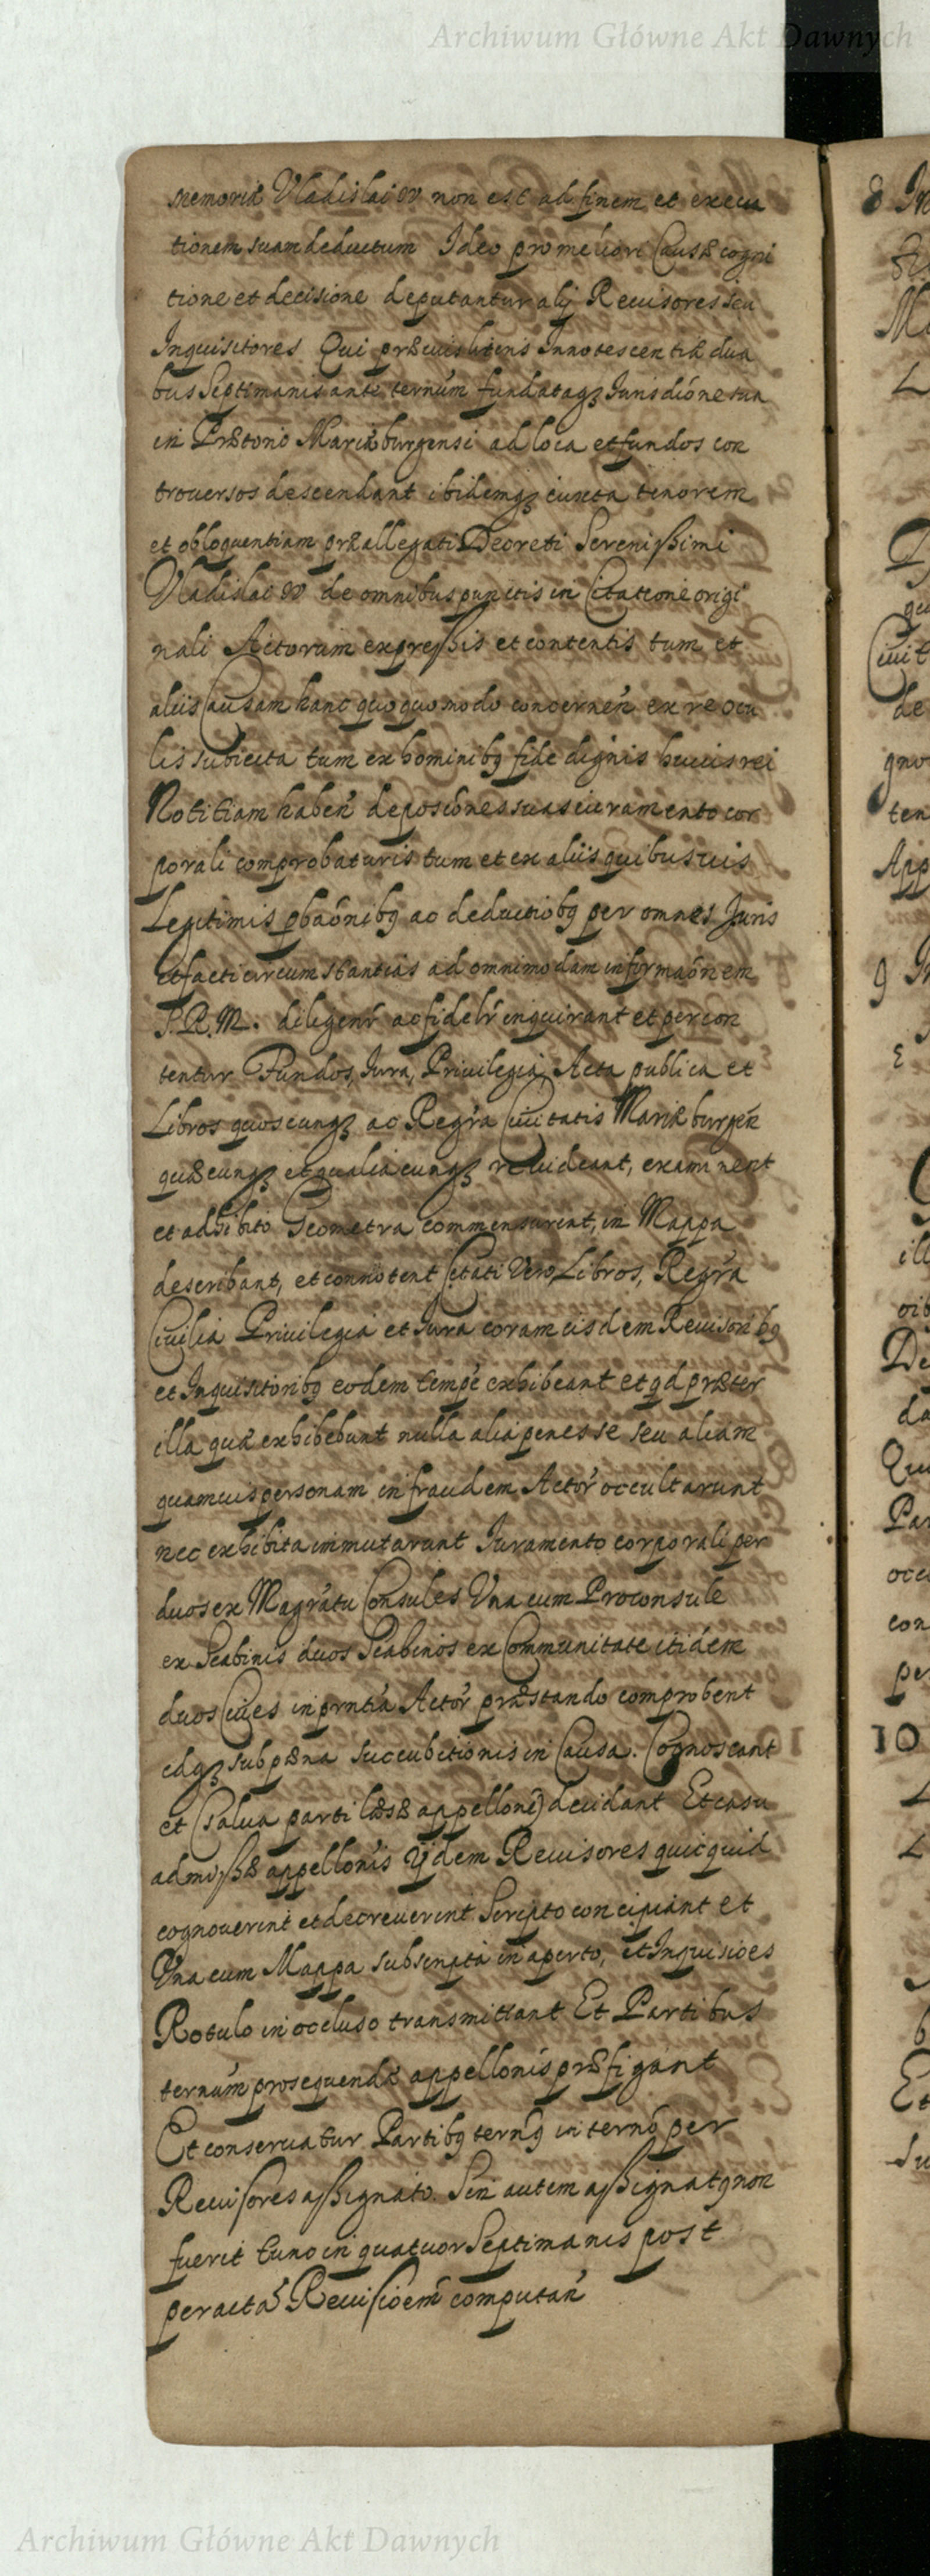 Archiwum Główne Akt Dawnych
memoriæ Vladislai IV non est ad finem et execu
tionem suam deductum Ideo pro meliori Causæ cogni
tione et decisione deputantur alij Reuisores seu
Inquisitores Qui præuijs literis Innotescentiæ dua
bus Septimanis ante ternúm fundataq3 Jurisdióne sua
in Prætorio Mariæburgensi ad loca et fundos con
trouersos descendant ibidemq3 iuxta tenorem
et obloquentiam præallegati Decreti Serenissimi
Vladislai IV de omnibus punctis in Citatione origi
nali Actorum expressis et contentis tum et
aliis Causam hanc quoquomodo concerneń ex re ocu
lis subiecta tum ex hominibq fide dignis huius rei
Notitiam habeń deposiónes suas iuramento cor
porali comprobaturis tum et ex aliis quibusuis
Legitimis pbaónibq ac deductiobq per omnes Juris
et facti circumstantias ad omnimodam informaónem
S.R.M. diligenŕ ac fidelŕ inquirant et percon
tentur Fundos, Jura, Priuilegia, Acta publica et
Libros quoscunq3 ac Regŕa Ciuitatis Mariæburgeń
quæcunq3 et qualiacunq3 reuideant, examinent
et adhibito Geometra commensurent, in Mappa
describant, et connotent Citati Vero, Libros, Regŕa
Ciuilia Priuilegia et Jura coram eisdem Reuisoribq
et Inquisitoribq eodem tempe exhibeant et qd præter
illa quæ exhibebunt nulla alia penes se seu aliam
quamuis personam in fraudem Actoŕ occultarunt
nec exhibita immutarunt Iuramento corporali per
duos ex Magŕatu Consules Vna cum Proconsule
ex Scabinis duos Scabinos ex Communitate itidem
duos Ciues in prntia Actoŕ præstando comprobent
idq3 sub pæna succubitionis in Causa. Cognoscant
et (Salua parti læsæ appelloné) decidant Et casu
admissæ appellonis ijdem Reuisores quicquid
cognouerint et decreuerint Scripto concipiant et
Vna cum Mappa subscripta in aperto, et Inquisióes
Rotulo in occluso transmittant Et Partibus
ternúm prosequendæ appellonis præfigant
Et conseruatur Partibq ternq in ternó per
Reuisores assignato. Sin autem assignatq non
fuerit tunc in quatuor Septimanis post
peractá Reuisioem computań
8
9
10
Archiwum Główne Akt Dawnych